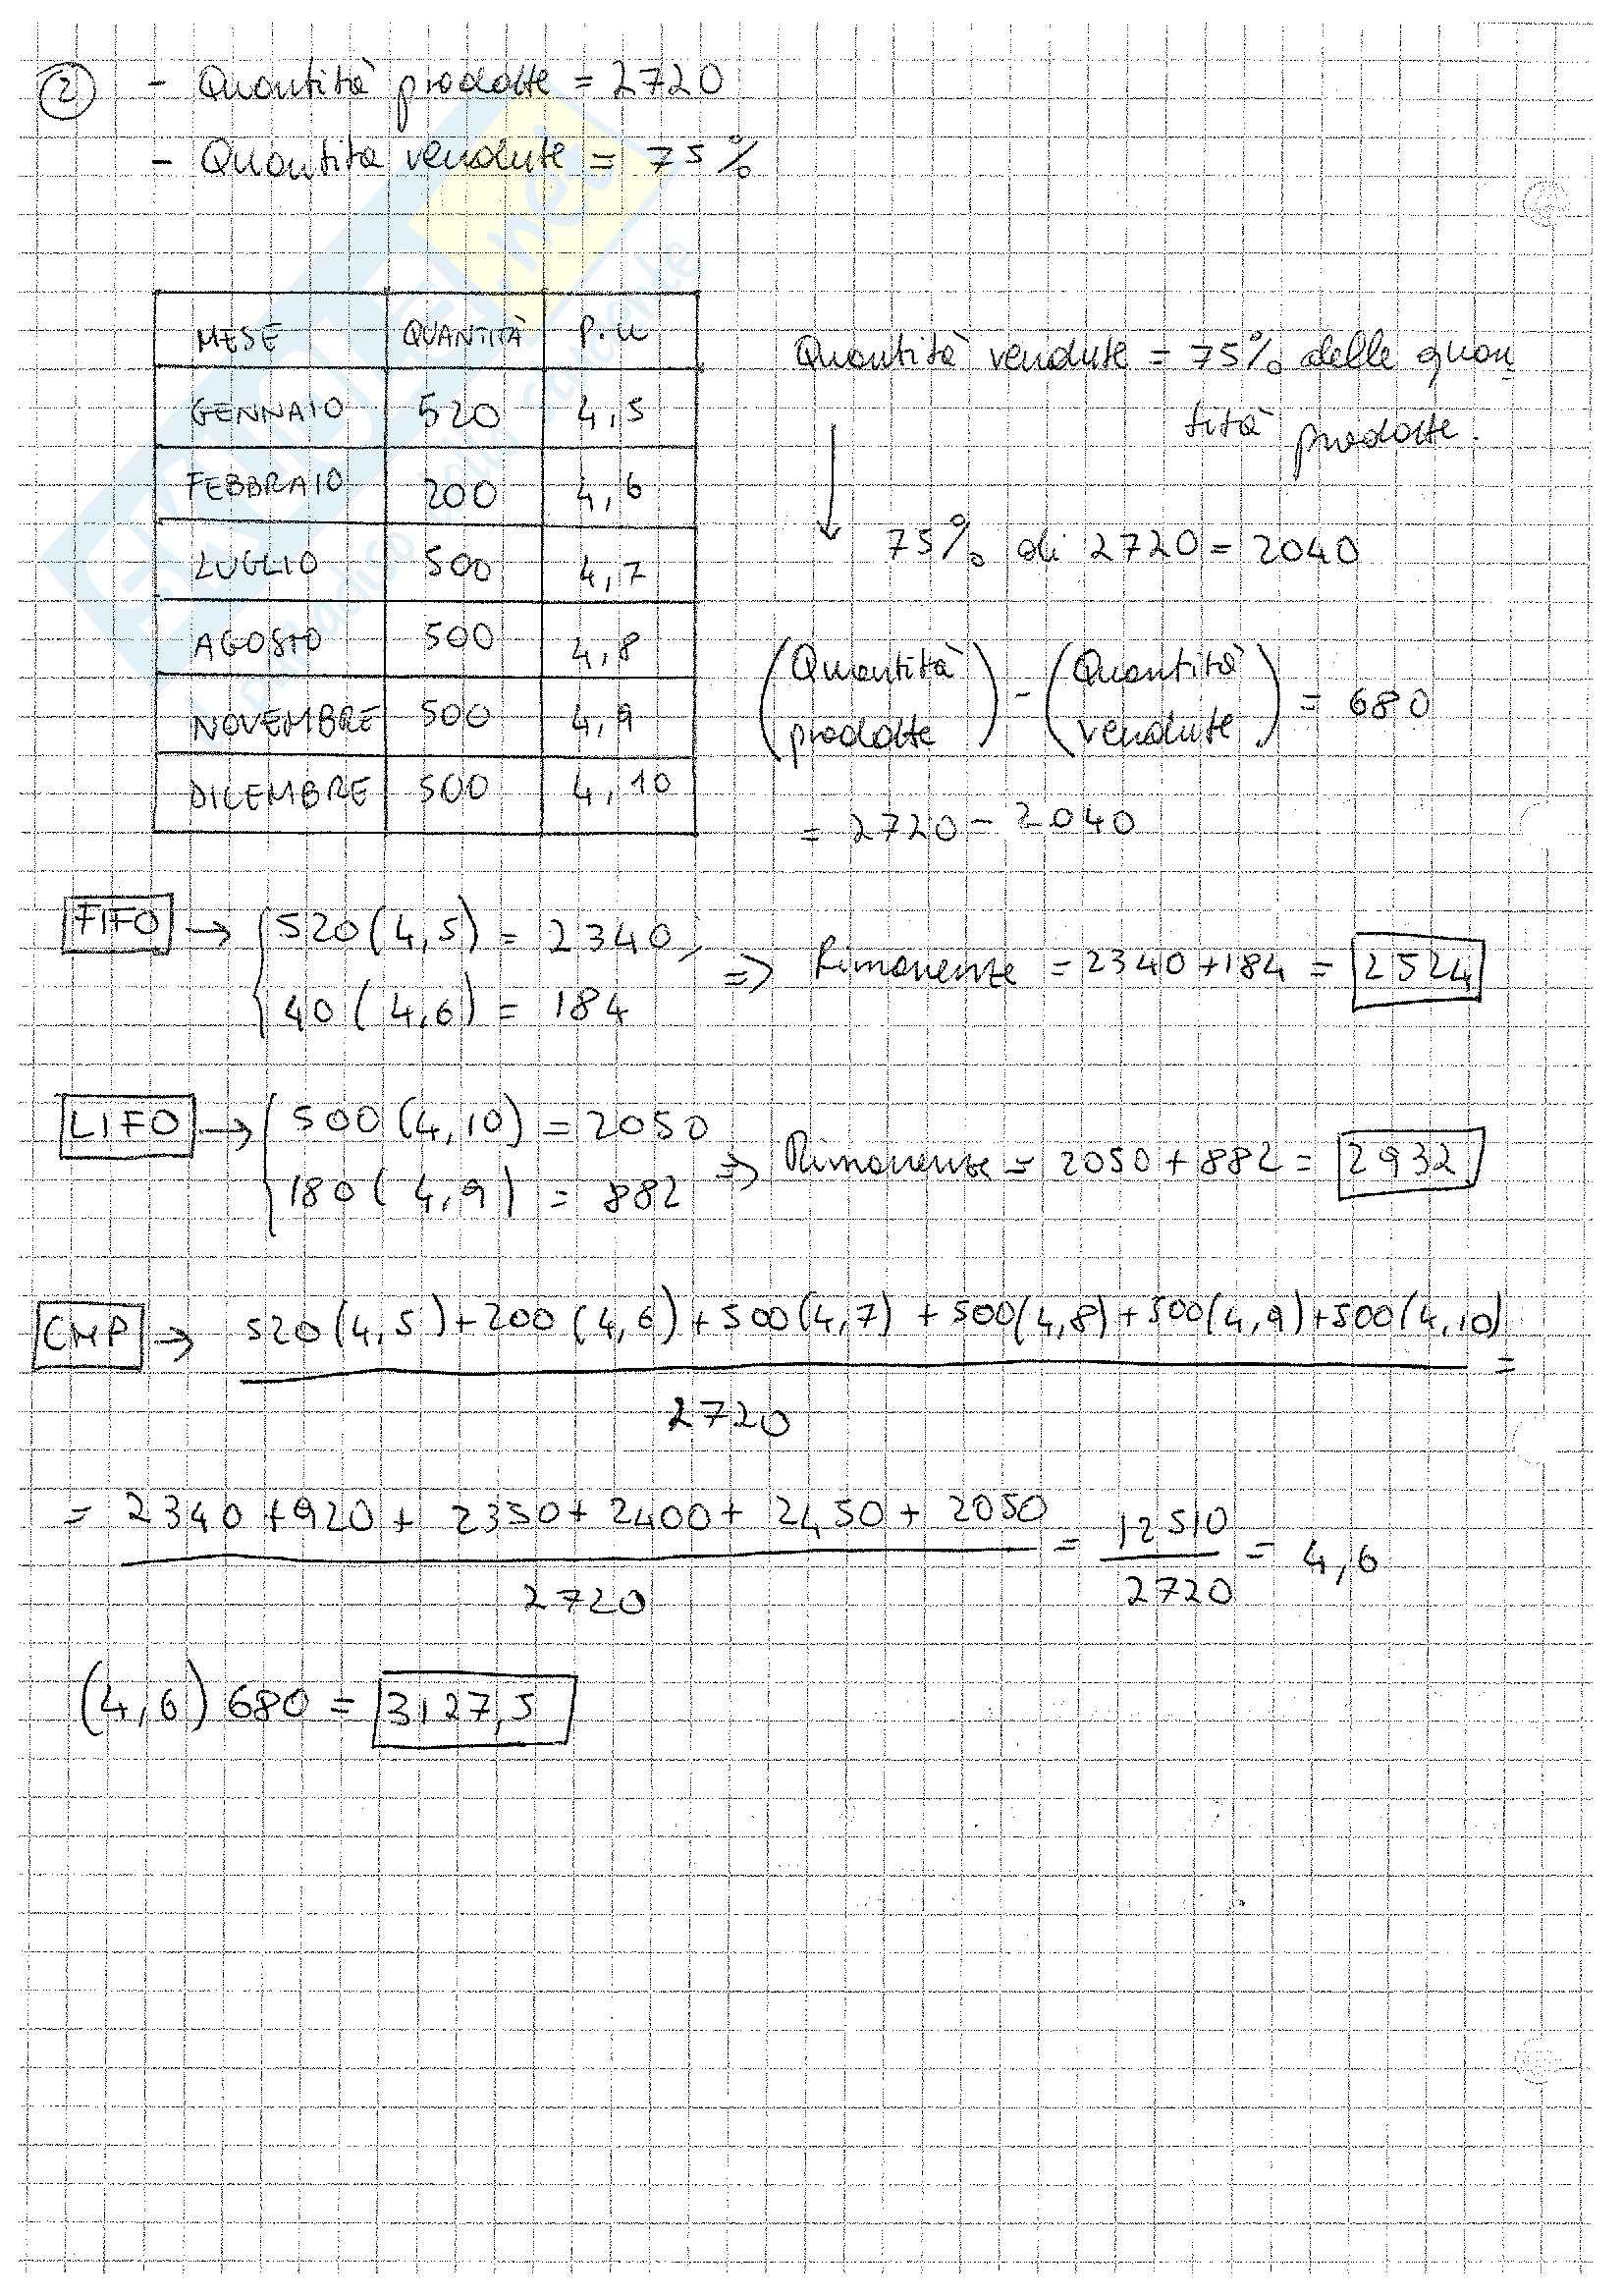 ② - Quantità prodotte = 2720
- Quantita vendute = 75%
MESE QUANTITÀ P.U
GENNAIO 520 4,5
FEBBRAIO 200 4,6
LUGLIO 500 4,7
AGOSTO 500 4,8
NOVEMBRE 500 4,9
DICEMBRE 500 4,10
Quantità vendute = 75% delle quan
tità prodotte.
↓ 75% di 2720 = 2040
(Quantità prodotte) - (Quantità vendute) = 680
= 2720 - 2040
FIFO → { 520 (4,5) = 2340
40 (4,6) = 184
⇒ Rimanenze = 2340 + 184 = 2524
LIFO → { 500 (4,10) = 2050
180 (4,9) = 882
⇒ Rimanenze = 2050 + 882 = 2932
CMP → 520 (4,5) + 200 (4,6) + 500 (4,7) + 500 (4,8) + 500 (4,9) + 500 (4,10) =
2720
= 2340 + 920 + 2350 + 2400 + 2450 + 2050 = 12510 = 4,6
2720 2720
(4,6) 680 = 3127,5